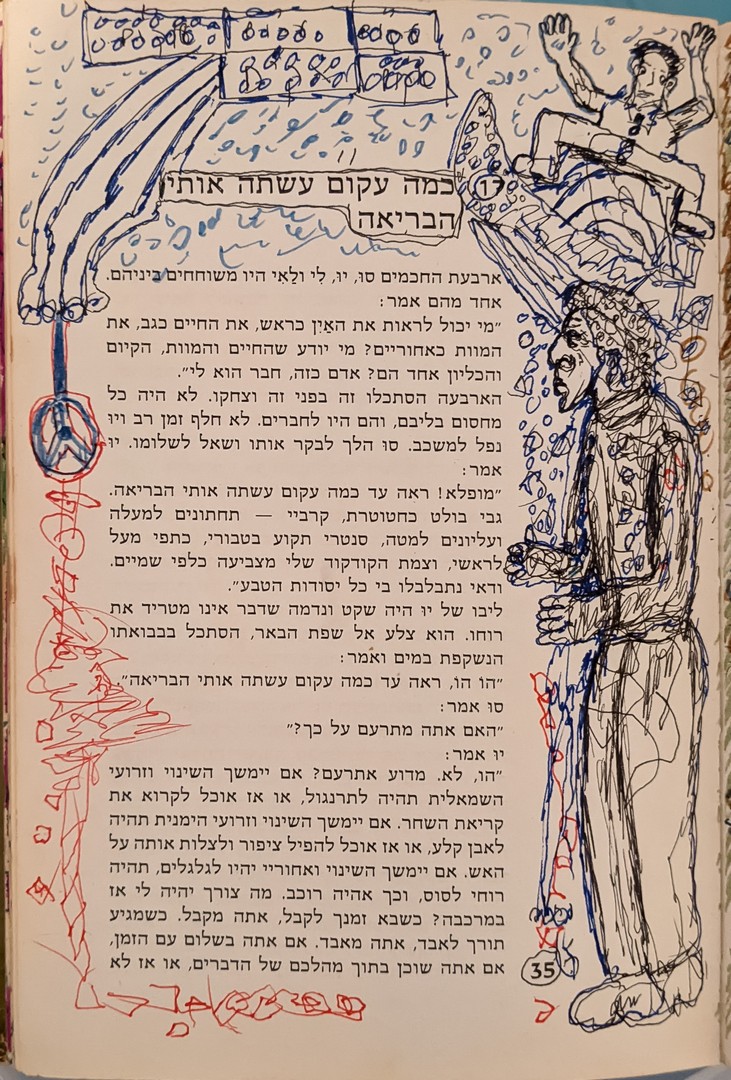 17
כמה עקום עשתה אותי
הבריאה
ארבעת החכמים סוּ, יוּ, לִי ולַאִי היו משוחחים ביניהם.
אחד מהם אמר:
״מי יכול לראות את האַיִן כראש, את החיים כגב, את
המוות כאחוריים? מי יודע שהחיים והמוות, הקיום
והכליון אחד הם? אדם כזה, חבר הוא לי״.
הארבעה הסתכלו זה בפני זה וצחקו. לא היה כל
מחסום בליבם, והם היו לחברים. לא חלף זמן רב ויוּ
נפל למשכב. סוּ הלך לבקר אותו ושאל לשלומו. יוּ
אמר:
״מופלא! ראה עד כמה עקום עשתה אותי הבריאה.
גבי בולט כחטוטרת, קרביי — תחתונים למעלה
ועליונים למטה, סנטרי תקוע בטבורי, כתפי מעל
לראשי, וצמת הקודקוד שלי מצביעה כלפי שמיים.
ודאי נתבלבלו בי כל יסודות הטבע״.
ליבו של יוּ היה שקט ונדמה שדבר אינו מטריד את
רוחו. הוא צלע אל שפת הבאר, הסתכל בבבואתו
הנשקפת במים ואמר:
״הוֹ הוֹ, ראה עד כמה עקום עשתה אותי הבריאה״.
סוּ אמר:
״האם אתה מתרעם על כך?״
יוּ אמר:
״הוֹ, לא. מדוע אתרעם? אם יימשך השינוי וזרועי
השמאלית תהיה לתרנגול, או אז אוכל לקרוא את
קריאת השחר. אם יימשך השינוי וזרועי הימנית תהיה
לאבן קלע, או אז אוכל להפיל ציפור ולצלות אותה על
האש. אם יימשך השינוי ואחוריי יהיו לגלגלים, תהיה
רוחי לסוס, וכך אהיה רוכב. מה צורך יהיה לי אז
במרכבה? כשבא זמנך לקבל, אתה מקבל. כשמגיע
תורך לאבד, אתה מאבד. אם אתה בשלום עם הזמן,
אם אתה שוכן בתוך מהלכם של הדברים, או אז לא
35